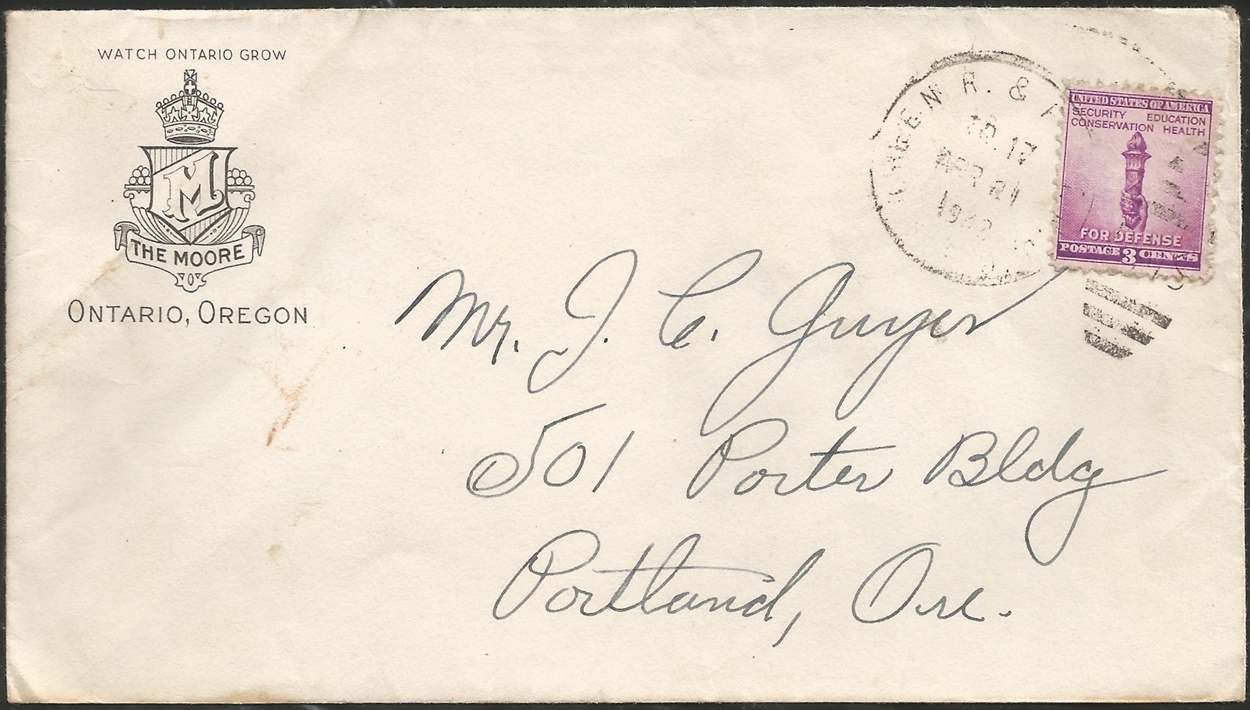 WATCH ONTARIO GROW
M
THE MOORE
ONTARIO, OREGON
R. &
TR. 17
APR 21
1942
UNITED STATES OF AMERICA
SECURITY EDUCATION
CONSERVATION HEALTH
FOR DEFENSE
POSTAGE 3 CENTS
Mr. J. C. Guyer
501 Porter Bldg
Portland, Ore.